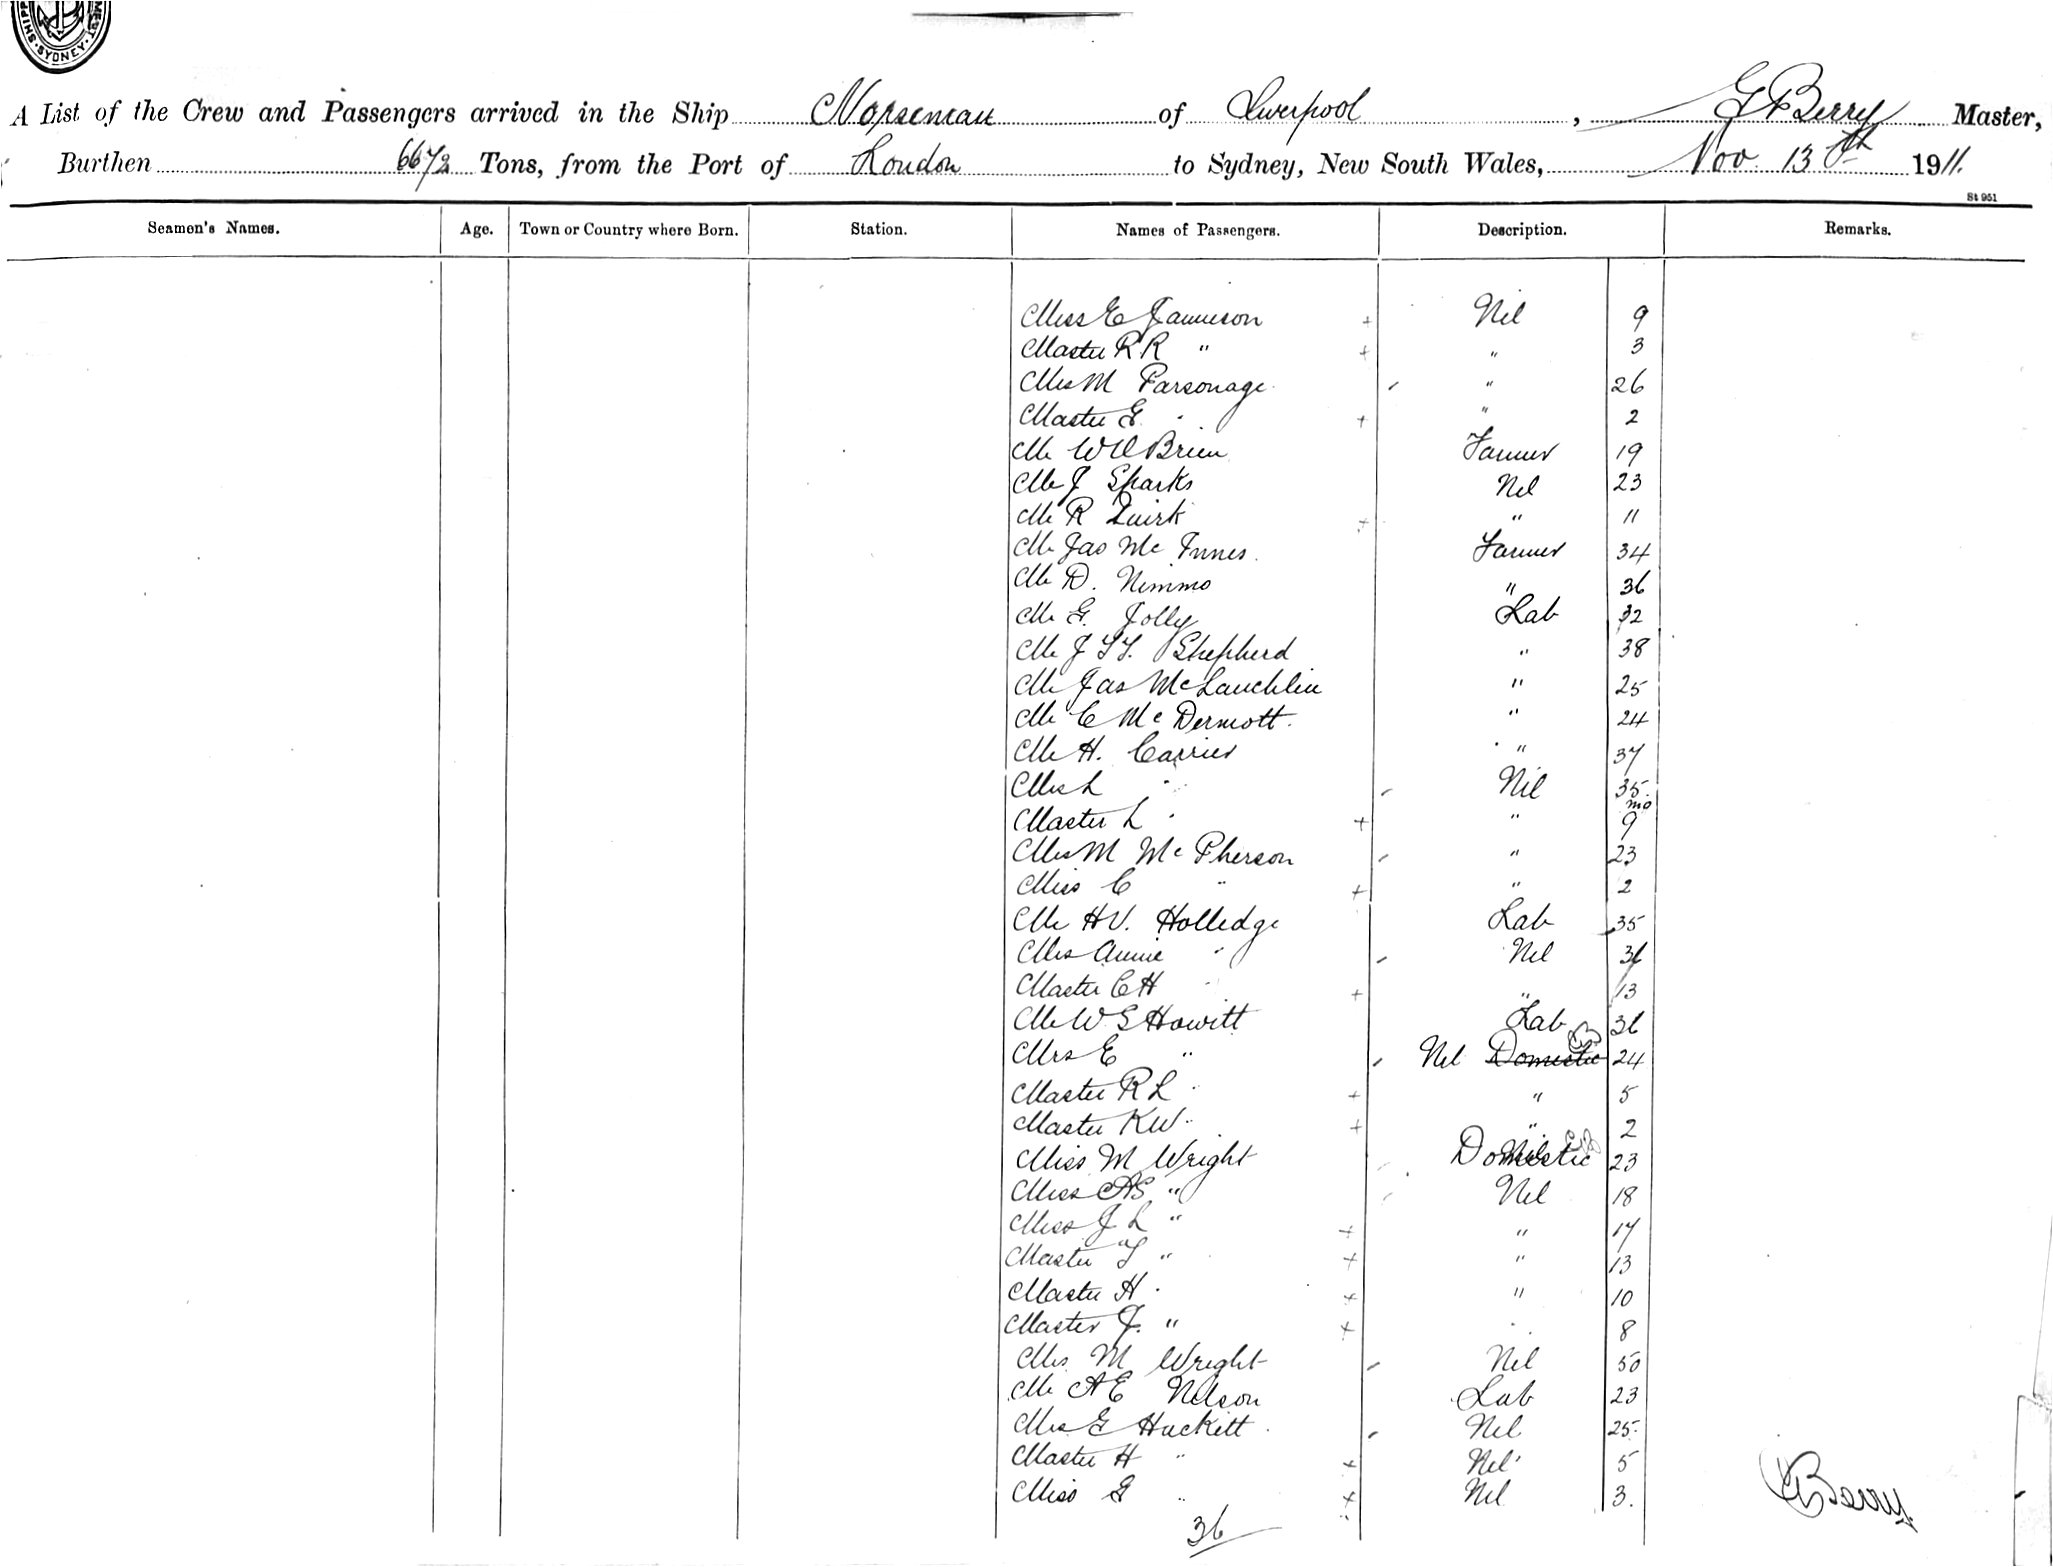 SHIPP · SYDNEY · MENT
A List of the Crew and Passengers arrived in the Ship Norseman of Liverpool, G Berry Master,
Burthen 6672 Tons, from the Port of London to Sydney, New South Wales, Nov 13th 1911.
St 951
Seamen's Names. Age. Town or Country where Born. Station. Names of Passengers. Description. Remarks.
Miss E Jamieson + Nil 9
Master R R " + " 3
Mrs M Parsonage " 26
Master G " + " 2
Mr W O Brien Farmer 19
Mr J Sparks Nil 23
Mr R Quirk + " 11
Mr Jas Mc Innes. Farmer 34
Mr D. Nimmo " 36
Mr G. Jolly Lab 32
Mr J Shepherd " 38
Mr Jas McLauchlin " 25
Mr C Mc Dermott. " 24
Mr H. Carrier " 37
Mrs L " Nil 35
Master L " + " mo 9
Mrs M Mc Pherson " 23
Miss C " + " 2
Mr H V. Holledge Lab 35
Mrs Annie " Nil 36
Master C H " + " 13
Mr W G Howitt Lab 36
Mrs E " Nil Domestic 24
Master R L " + " 5
Master K W " + " 2
Miss M Wright Domestic 23
Miss A G " Nil 18
Miss J L " + " 17
Master T " + " 13
Master H " + " 10
Master J. " + " 8
Mrs M Wright Nil 50
Mr A E Nelson Lab 23
Mrs G Hackett. Nil 25
Master H " + Nil 5
Miss G " + Nil 3.
36
G Berry